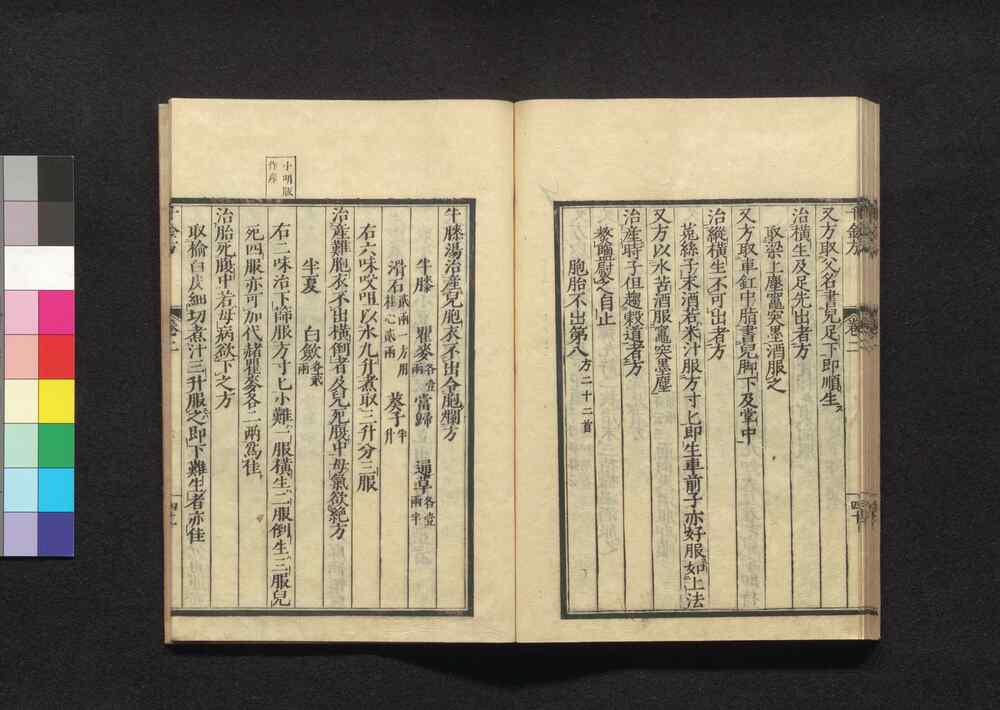 又方取父名書兒足下即順生
治橫生及足先出者方
取梁上塵竈突墨酒服之
又方取車釭中脂書兒脚下及掌中
治縱橫生不可出者方
菟絲子末酒若米汁服方寸匕即生車前子亦好服如上法
又方以水苦酒服竈突墨塵
治產時子但趨穀道者方
熬鹽熨之自止
胞胎不出第八 方二十二首
牛膝湯治產兒胞衣不出令胞爛方
牛膝 瞿麥各壹兩 當歸 通草各壹兩半
滑石貳兩一方用桂心貳兩 葵子半升
右六味㕮咀以水九升煮取三升分三服
治產難胞衣不出橫倒者及兒死腹中母氣欲絕方
半夏 白斂各貳兩
小明版
作產
右二味治下篩服方寸匕小難一服橫生二服倒生三服兒
死四服亦可加代赭瞿麥各二兩爲佳
治胎死腹中若母病欲下之方
取榆白皮細切煮汁三升服之即下難生者亦佳